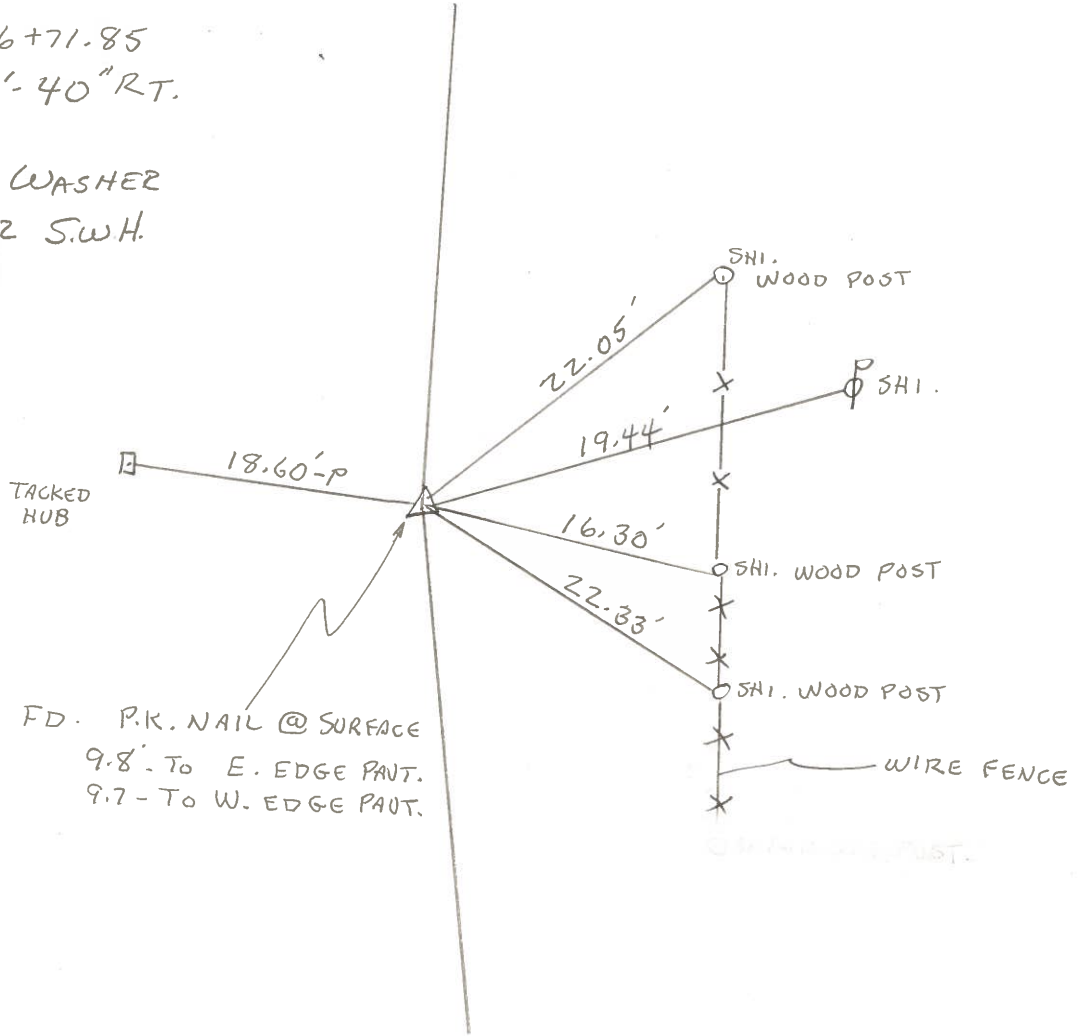 6+71.85
'-40" RT.
WASHER
2 S.W.H.
SHI.
WOOD POST
22.05'
P
SHI.
19.44'
18.60'-P
TACKED
HUB
16.30'
SHI. WOOD POST
22.33'
SHI. WOOD POST
FD. P.K. NAIL @ SURFACE
9.8'- TO E. EDGE PAVT.
9.7 - TO W. EDGE PAVT.
WIRE FENCE